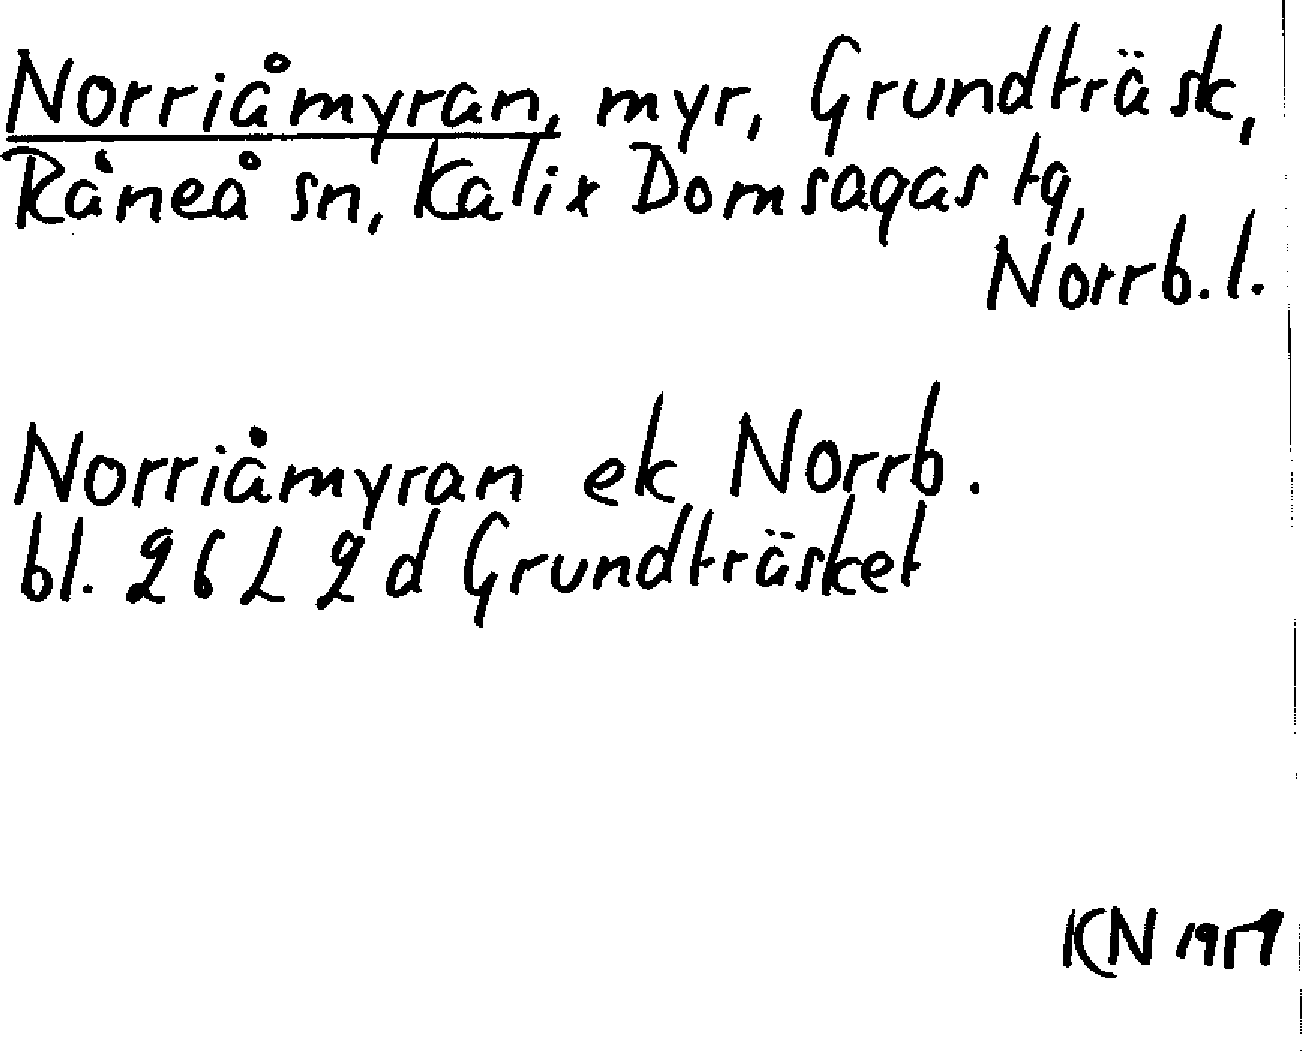 Norriåmyran, myr, Grundträsk,
Råneå sn, Kalix Domsagas tg,
Norrb. l.
Norriåmyran ek Norrb.
bl. 26 L 2 d Grundträsket
KN